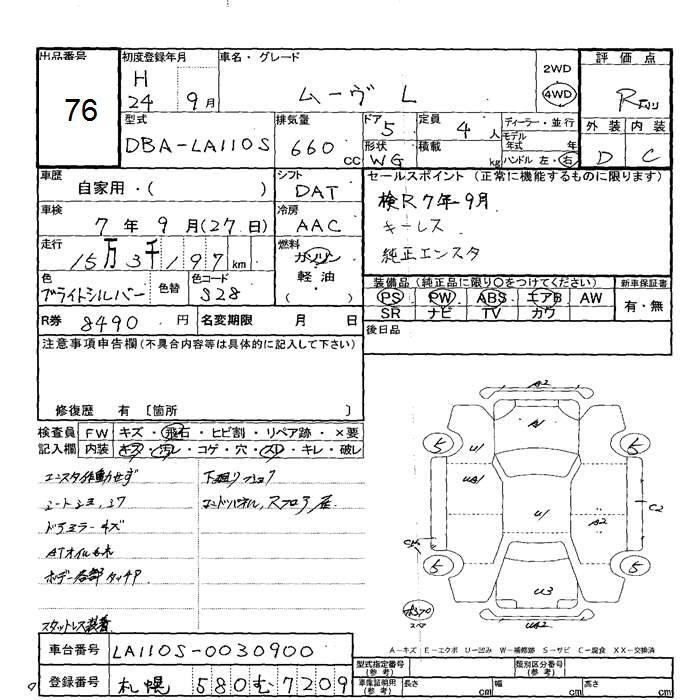 出品番号
76
初度登録年月
H
24 9月
車名・グレード
ムーヴ L
2WD
4WD
評価点
R
外装 内装
D C
型式
DBA-LA110S
排気量
660 cc
ドア 5
形状
WG
定員
4 人
積載
kg
ディーラー・並行
モデル
年式 年
ハンドル 左・右
車歴
自家用・( )
シフト
DAT
車検
7年9月(27日)
冷房
AAC
走行
15万3千197km
燃料
ガソリン
軽油
( )
色
ブライトシルバー
色替
色コード
S28
R券 8490 円
名変期限 月 日
セールスポイント (正常に機能するものに限ります)
検R7年-9月
キーレス
純正エンスタ
装備品 (純正品に限り○をつけてください)
PS PW ABS エアB AW
SR ナビ TV カワ
新車保証書
有・無
後日品
注意事項申告欄 (不具合内容等は具体的に記入して下さい)
修復歴 有 〔箇所 〕
検査員
記入欄
FW キズ・飛石・ヒビ割・リペア跡・×要
内装 キズ・汚レ・コゲ・穴・スレ・キレ・破レ
エンスタ作動せず
ドアミラーキズ
ATオイルもれ
ボデー各部タッチP
スタットレス装着
A2
A1
5
5
U1
UA1
U1
A2
C2
5
5
U3
UA2
A-キズ E-エクボ U-凹み W-補修跡 S-サビ C-腐食 XX-交換済
車台番号 LA110S-0030900
登録番号 札幌 580 む 7209
型式指定番号
(参考)
類別区分番号
(参考)
車庫証明用
(参考)
長さ cm 幅 cm 高さ cm